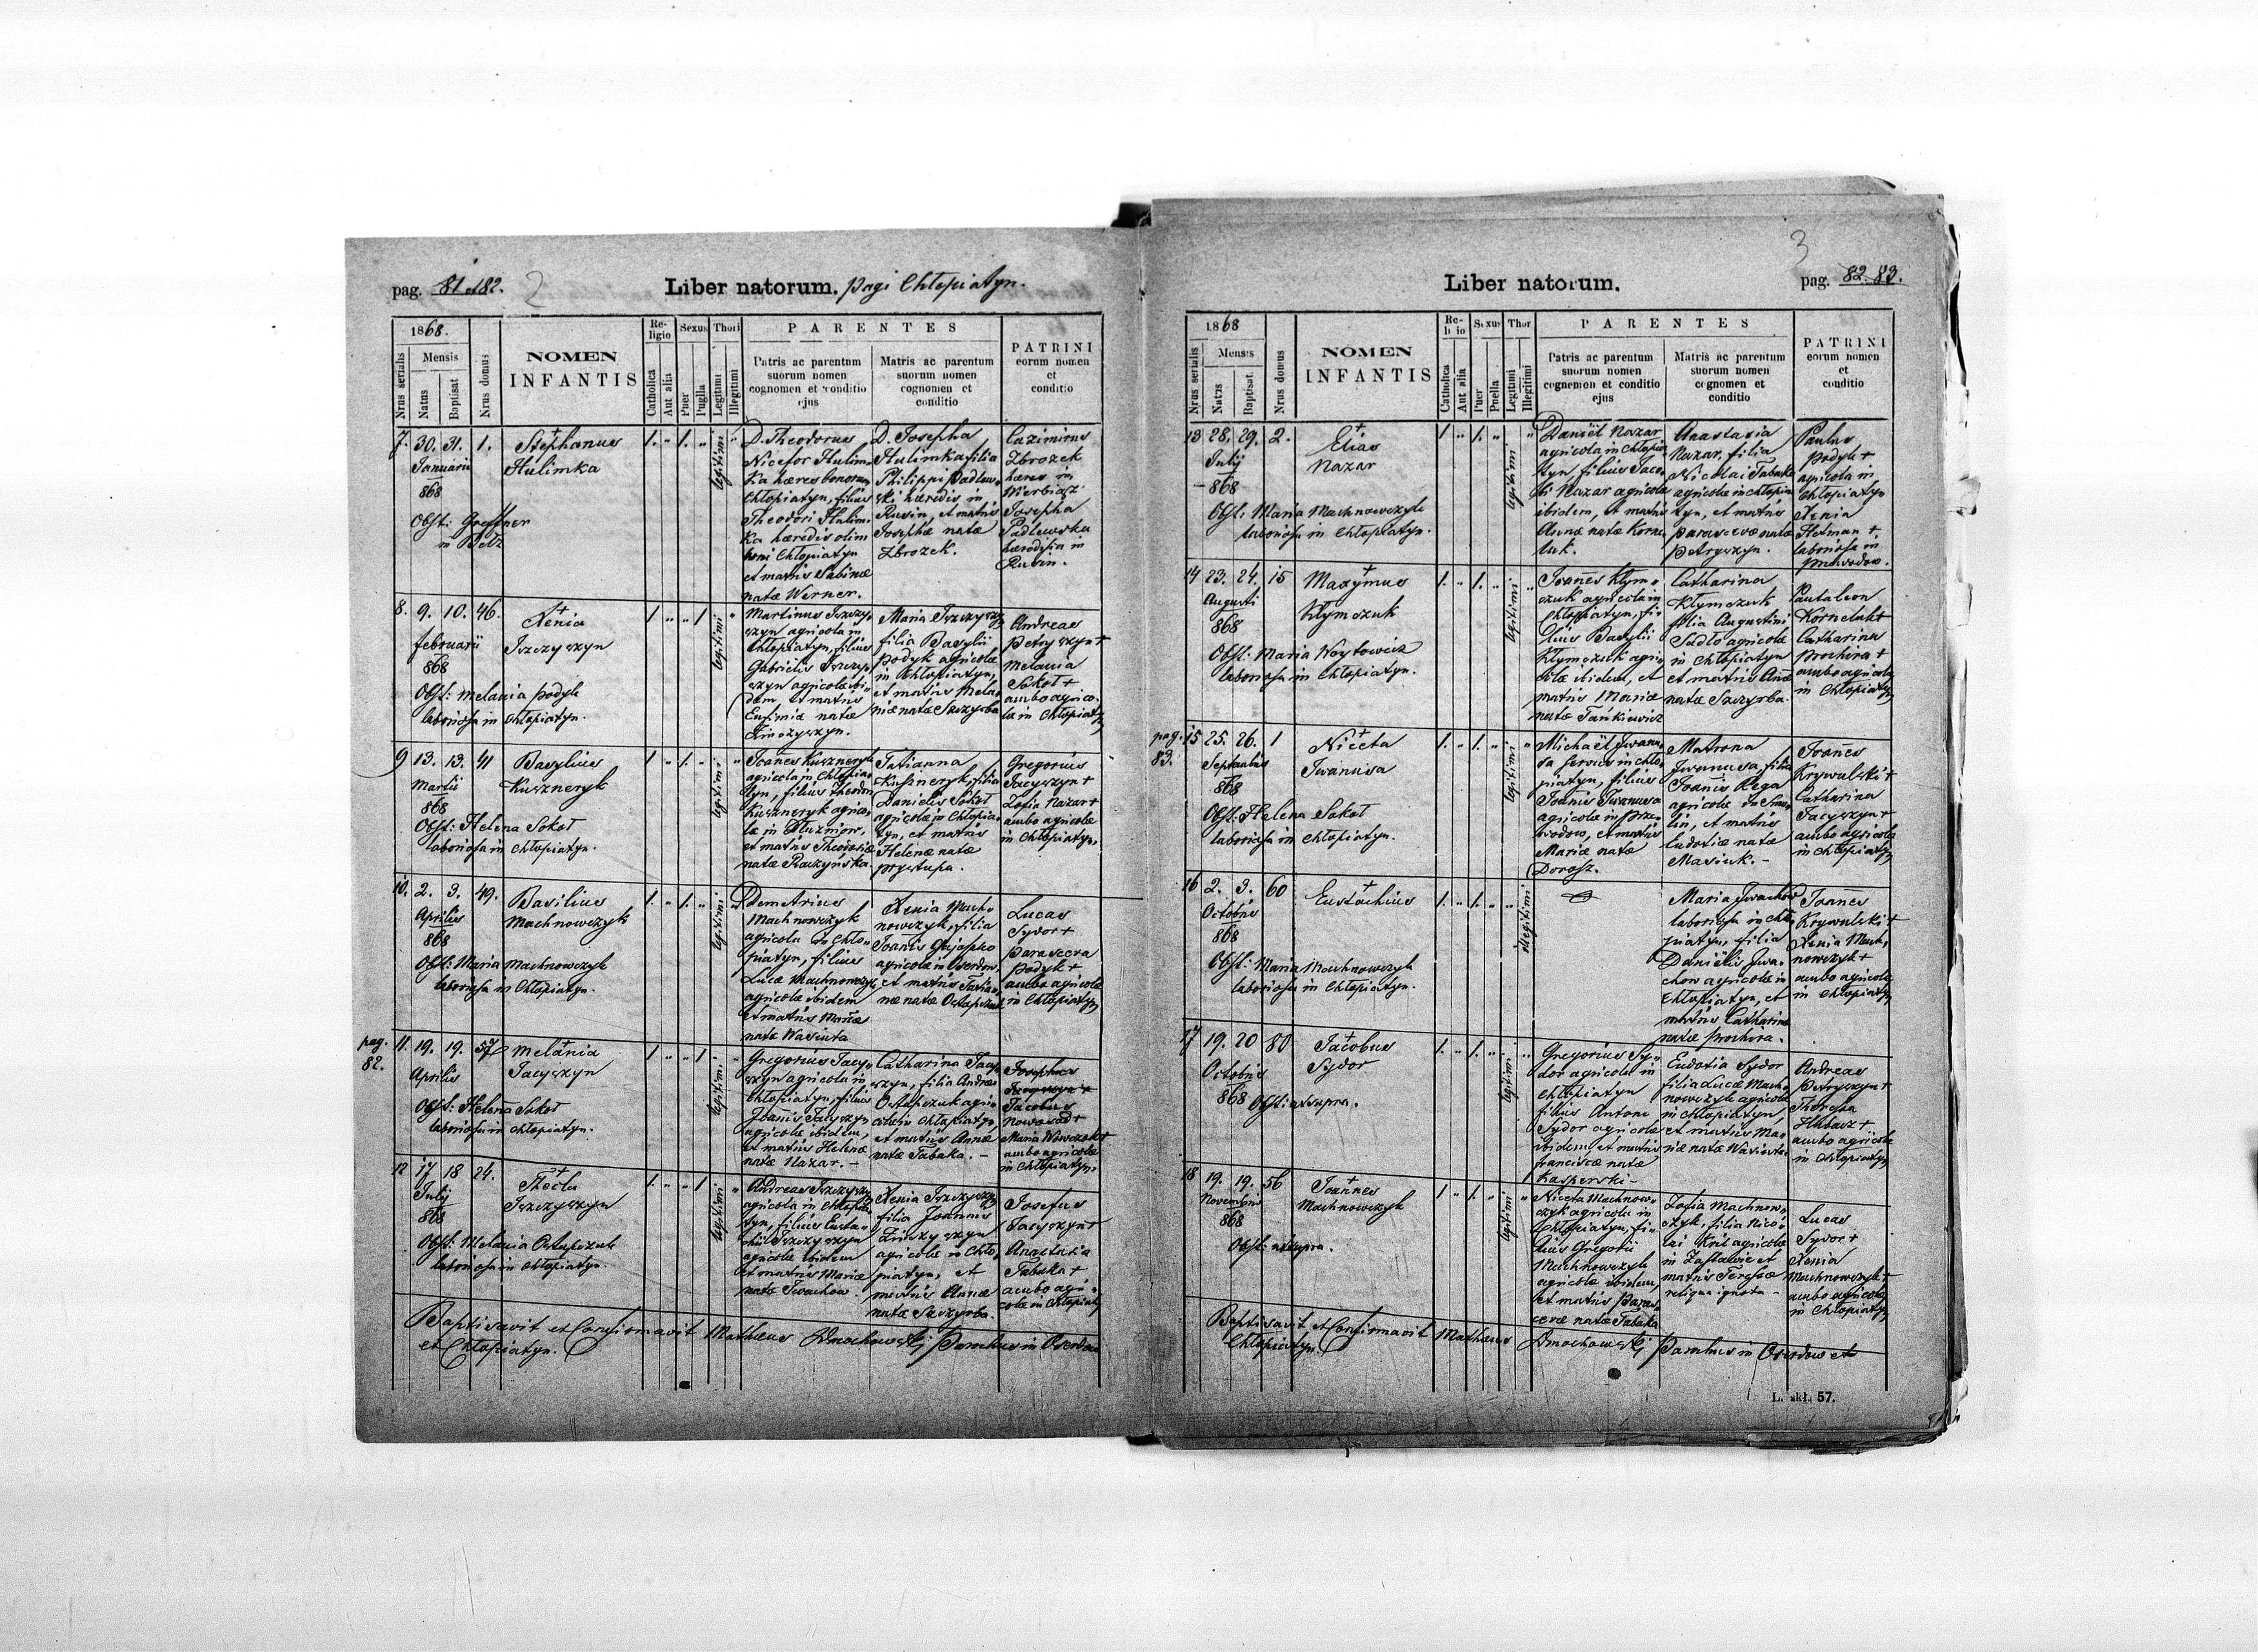 pag. 81 et 82. 2 Liber natorum. pagi Chłopiatyn.
1868.
Nrus serialis
Mensis
Natus
Baptisat
Nrus domus
NOMEN
INFANTIS
Religio
Catholica
Aut alia
Sexus
Puer
Puella
Thori
Legitimi
Illegitimi
PARENTES
Patris ac parentum
suorum nomen
cognomen et conditio
ejus
Matris ac parentum
suorum nomen
cognomen et
conditio
PATRINI
eorum nomen
et
conditio
7. 30. 31. 1.
Januarii
868
Stephanus
Hulimka
Obst: Greffner
in Bełz
1. „ 1. „ legitimi „
D. Theodorus
Nicefor Hulim
ka hæres bonorum
Chłopiatyn, filius
Theodori Hulim
ka hæredis olim
boni Chłopiatyn
et matris Sabinæ
natæ Werner.
D. Josepha
Hulimka filia
Philippi Padlew
ski hæredis in
Rusin, et matris
Josephæ natæ
Zbrozek.
Cazimirus
Zbrozek
hæres in
Wierbiąż
Josepha
Padlewska
hæredissa in
Rusin.
8. 9. 10. 46.
februarii
868
Xenia
Iszczyszyn
Obst: Melania Podyk
laboriosa in Chłopiatyn.
1 „ „ 1 legitimi „
Martinus Iszczy,
szyn agricola in
Chłopiatyn, filius
Gabrielis Iszczy,
szyn agricolæ ibi,
dem et matris
Eufimiæ natæ
Zinczyszyn.
Maria Iszczyszyn
filia Basylii
Podyk agricolæ
in Chłopiatyn,
et matris Mela,
niæ natæ Szczyrba
Andreas
Petryszyn +
Melania
Sokoł +
ambo agrico,
læ in Chłopiatyn
9 13. 13. 41
Martii
868
Basylius
Kuszneryk
Obst: Helena Sokoł
laboriosa in Chłopiatyn.
1 „ 1. „ legitimi „
Joannes Kuszneryk
agricola in Chłopia
tyn, filius Theodori
Kuszneryk agrico,
læ in Dłużniow,
et matris Theodosiæ
natæ Raczyńska.
Tatianna
Kuszneryk, filia
Danielis Sokoł
agricolæ in Chłopia
tyn, et matris
Helenæ natæ
Prystupa.
Gregorius
Jacyszyn +
Zofia Nazar +
ambo agricolæ
in Chłopiatyn,
10. 2. 3. 49.
Aprilis
868
Basilius
Machnowczyk
Obst: Maria Machnowczyk
laboriosa in Chłopiatyn.
1. „ 1. „ legitimi „
Demetrius
Machnowczyk
agricola in Chło,
piatyn, filius
Lucæ Machnowczyk
agricolæ ibidem
et matris Mariæ
natæ Wasiuta
Xenia Mach
nowczyk, filia
Joannis
agricolæ in Oserdow,
et matris Tatian,
næ natæ Ostapczuk
Lucas
Sydor +
Parascera
Podyk +
ambo agricolæ
in Chłopiatyn
pag.
82.
11. 19. 19. 57
Aprilis
Melania
Jacyszyn
Obst: Helena Sokoł
laboriosa in Chłopiatyn.
1 „ „ 1 legitimi „
Gregorius Jacy,
szyn agricola in
Chłopiatyn, filius
Joannis Jacyszyn
agricolæ ibidem,
et matris Helenæ
natæ Nazar. –
Catharina Jacy
szyn, filia Andreæ
Ostapczuk agri,
colæ in Chłopiatyn,
et matris Annæ
natæ Tabaka. –
Josephus
Jacobus
Nowosad +
Maria Wowczok +
ambo agricolæ
in Chłopiatyn,
12 17 18 24.
July
868
Thecla
Iszczyszyn
Obst: Melania Ostapczuk
laboriosa in Chłopiatyn.
1. „ „ 1 legitimi „
Andreas Iszczyszyn
agricola in Chłopia
tyn, filius Eusta,
chii Iszczyszyn
agricolæ ibidem
et matris Mariæ
natæ Iwachow.
Xenia Iszczyszyn
filia Joannis
Zinczyszyn
agricolæ in Chło,
piatyn, et
matris Annæ
natæ Szczyrba.
Josefus
Jacyszyn +
Anastasia
Tabaka +
ambo agri,
colæ in Chłopiatyn
Baptisavit et Confirmavit Mathæus Dmochowskij Parochus in Oserdow
et Chłopiatyn.
3
Liber natorum. pag. 82. 83.
1868
Nrus serialis
Mensis
Natus
Baptisat.
Nrus domus
NOMEN
INFANTIS
Religio
Catholica
Aut alia
Sexus
Puer
Puella
Thor
Legitimi
Illegitimi
PARENTES
Patris ac parentum
suorum nomen
cognomen et conditio
ejus
Matris ac parentum
suorum nomen
cognomen et
conditio
PATRINI
eorum nomen
et
conditio
13 28. 29. 2.
July
868
Elias
Nazar
Obst: Maria Machnowczyk
laboriosa in Chłopiatyn.
1 „ 1. „ legitimi „
Daniël Nazar
agricola in Chłopia
tyn filius Jaco,
bi Nazar agricolæ
ibidem, et matris
Annæ natæ Korne
luk.
Anastasia
Nazar, filia
Nicolai Tabaka
agricolæ in Chłopia
tyn, et matris
Parascevæ natæ
Petryszyn.
Paulus
Podyk +
agricola in
Chłopiatyn
Xenia
Hetman +
laboriosa in
Przewodow.
14 23. 24. 15
Augusti
868
Maxymus
Kłymczuk
Obst: Maria Woytowicz
laboriosa in Chłopiatyn.
1. „ 1. „ legitimi „
Joannes Kłym,
czuk agricola in
Chłopiatyn, fi,
lius Basylii
Kłymczuk agri,
colæ ibidem, et
matris Mariæ
natæ Tańkiewicz
Catharina
Kłymczuk
filia Augustini
Sadło agricolæ
in Chłopiatyn
et matris Annæ
natæ Szczyrba.
Pantaleon
Korneluk +
Catharina
Prochira +
ambo agricolæ
in Chłopiatyn
pag.
83.
15 25. 26. 1
Septembris
868
Niceta
Iwanusa
Obst: Helena Sokoł
laboriosa in Chłopiatyn.
1. „ 1. „ legitimi „
Michaël Iwanu,
sa servus in Chło,
piatyn, filius
Joannis Iwanusa
agricolæ in Prze
wodow, et matris
Mariæ natæ
Dorosz.
Matrona
Iwanusa, filia
Joannis Rega
agricolæ in
et matris
Eudosiæ natæ
Masiuk. –
Joannes
Krywulski +
Catharina
Jacyszyn +
ambo agricolæ
in Chłopiatyn
16 2. 3. 60
Octobris
868
Eustachius
Obst: Maria Machnowczyk
laboriosa in Chłopiatyn.
1. „ 1. „ „ illegitimi
Maria Iwachow
laboriosa in Chło,
piatyn, filia
Daniëlis Iwa,
chow agricolæ in
Chłopiatyn, et
matris Catharinæ
natæ Prochira.
Joannes
Krywulski +
Xenia Mach,
nowczyk +
ambo agricolæ
in Chłopiatyn
17 19. 20 80
Octobris
868
Jacobus
Sydor
Obst: ut supra.
1. „ 1. „ legitimi „
Gregorius Sy,
dor agricola in
Chłopiatyn
filius Antoni
Sydor agricolæ
ibidem, et matris
Franciscæ natæ
Kasperski –
Eudosia Sydor
filia Lucæ Mach,
nowczyk agricolæ
in Chłopiatyn,
et matris Ma,
riæ natæ Wasiuta
Andreas
Petryszyn +
Theresia
Hubacz +
ambo agricolæ
in Chłopiatyn
18 19. 19. 56
Novembris
868
Joannes
Machnowczyk
Obst: ut supra.
1 „ 1. „ legitimi „
Niceta Machnow,
czyk agricola in
Chłopiatyn, fi,
lius Gregorii
Machnowczyk
agricolæ ibidem,
et matris Paras,
cevæ natæ Tabaka
Zofia Machnow,
czyk, filia Nico,
lai Król agricolæ
in Zastawie et
matris Teresiæ
reliqua ignota –
Lucas
Sydor +
Xenia
Machnowczyk +
ambo agricolæ
in Chłopiatyn
Baptisavit et Confirmavit Mathæus Dmochowskij Parochus in Oserdow et
Chłopiatyn.
L. skł. 57.